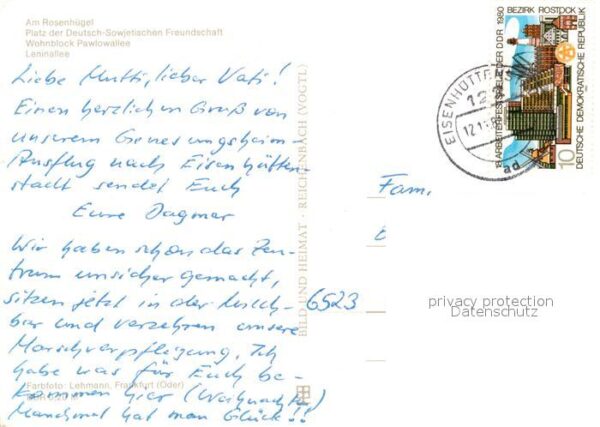 Am Rosenhügel
Platz der Deutsch-Sowjetischen Freundschaft
Wohnblock Pawlowallee
Leninallee
Liebe Mutti, lieber Vati!
Einen herzlichen Gruß von
unserem Genesungsheim-
Ausflug nach Eisenhütten-
stadt sendet Euch
Eure Dagmar
Wir haben schon das Zen-
trum unsicher gemacht,
sitzen jetzt in der Milch-
bar und verzehren unsere
Marschverpflegung. Ich
habe was für Euch be-
kommen hier (Weihnachten)
Manchmal hat man Glück!!
Farbfoto: Lehmann, Frankfurt (Oder)
BILD UND HEIMAT · REICHENBACH (VOGTL)
Fam.
6523
privacy protection
Datenschutz
ARBEITERFESTSPIELE DER DDR 1980 BEZIRK ROSTOCK
DEUTSCHE DEMOKRATISCHE REPUBLIK
10
EISENHÜTTENS
12
ad